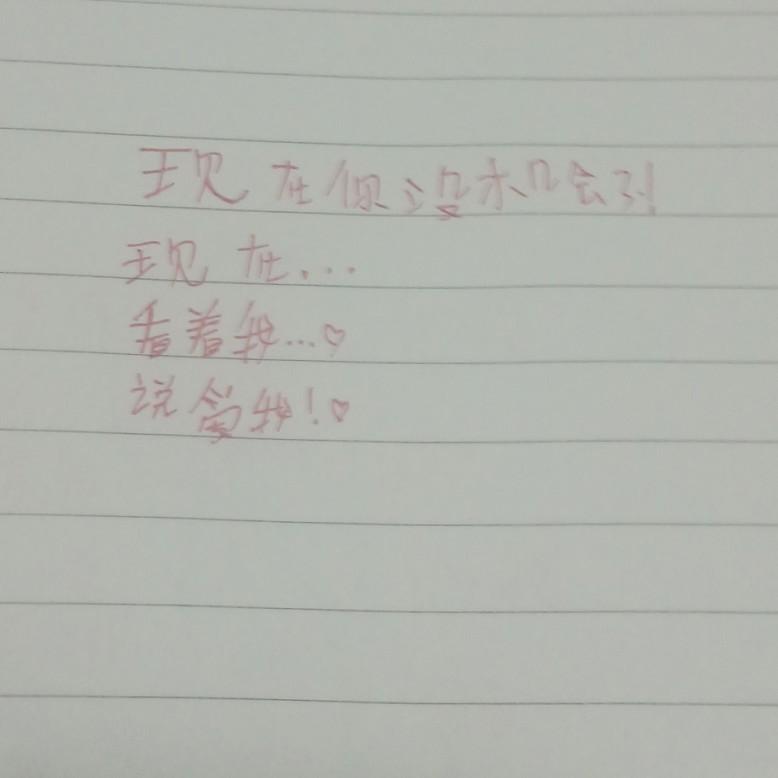 现在你没机会了!
现在...
看着我...♡
说爱我!♡